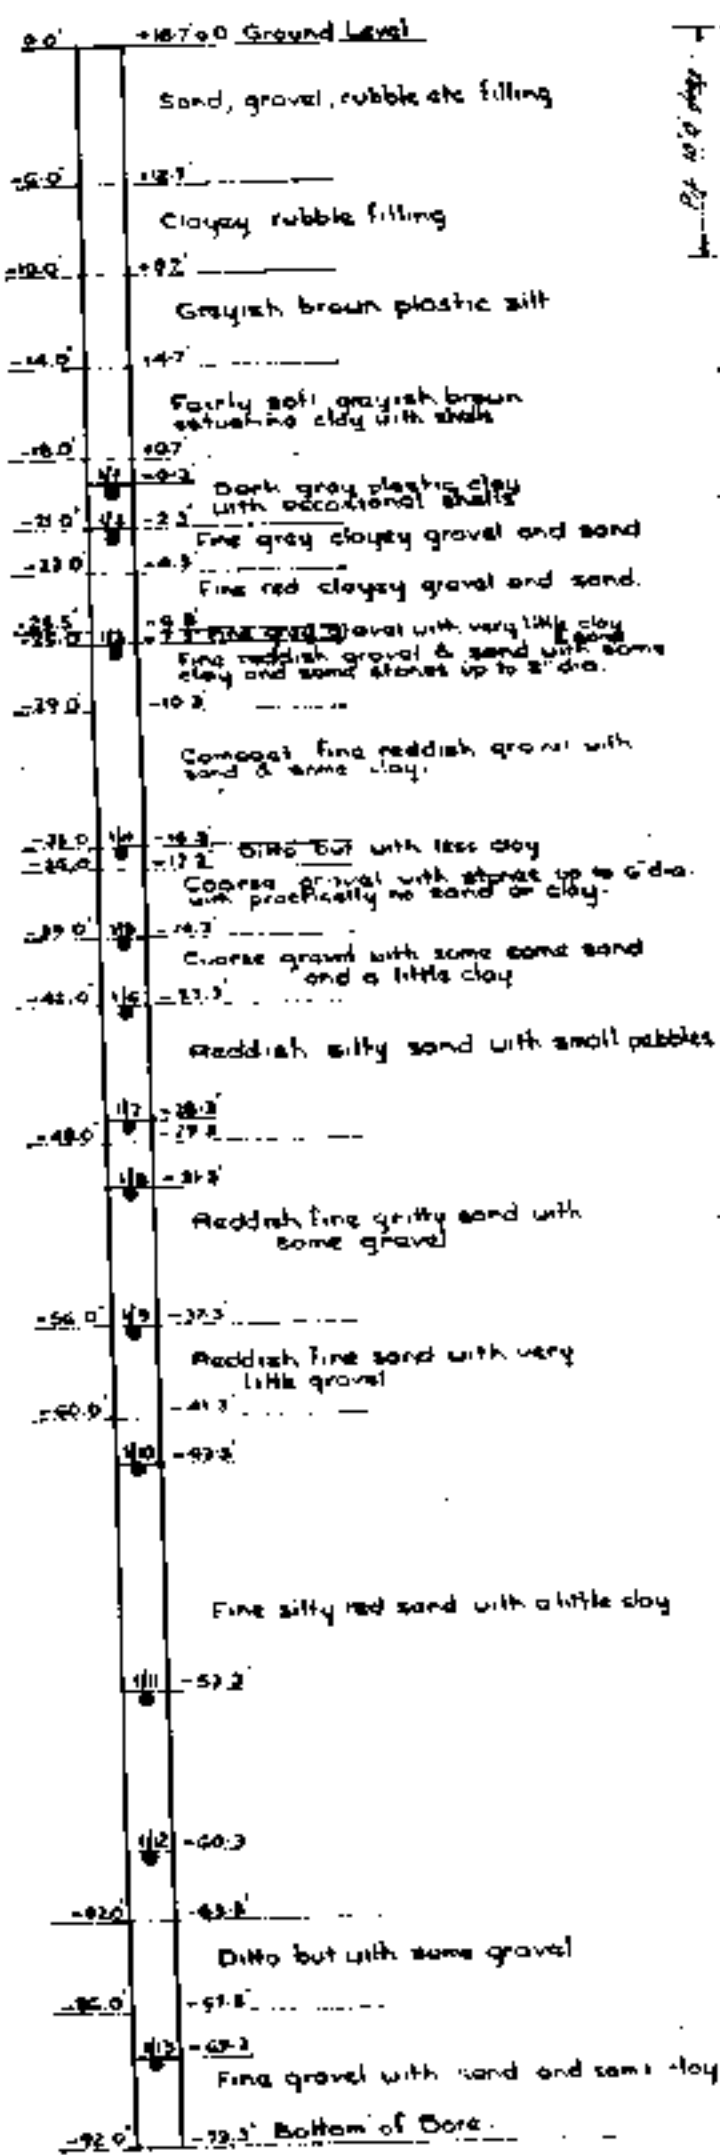 0.0' +18.7' O.D Ground Level
Sand, gravel, rubble etc filling
Pit 10'0" deep
-6.0' +12.7'
Clayey rubble filling
-10.0' +8.7'
Greyish brown plastic silt
-14.0' +4.7'
Fairly soft greyish brown
estuarine clay with shells
-18.0' +0.7'
1/1
Dark grey plastic clay
with occasional shells
-21.0' 1/2 -2.3'
Fine grey clayey gravel and sand
-23.0' -4.3'
Fine red clayey gravel and sand.
-25.5'
Fine grey gravel with very little clay
& sand
1/3
Fine reddish gravel & sand with some
clay and some stones up to 2" dia.
-29.0' -10.3'
Compact fine reddish gravel with
sand & some clay.
-35.0 1/4 -16.3'
Ditto but with less clay
-36.0' -17.3'
Coarse gravel with stones up to 6" dia.
with practically no sand or clay.
-39.0' 1/5 -20.3'
Coarse gravel with some some sand
and a little clay
-42.0' 1/6 -23.3'
Reddish silty sand with small pebbles
1/7 -28.3'
-48.0' -29.3
1/8 -31.3'
Reddish fine gritty sand with
some gravel
-56.0' 1/9 -37.3'
Reddish fine sand with very
little gravel
-60.0' -41.3'
1/10 -43.3'
Fine silty red sand with a little clay
1/11 -53.3'
1/12 -60.3
-82.0' -63.3'
Ditto but with some gravel
-86.0' -67.3'
1/13 -69.3
Fine gravel with sand and some clay
-92.0' -73.3' Bottom of Bore.